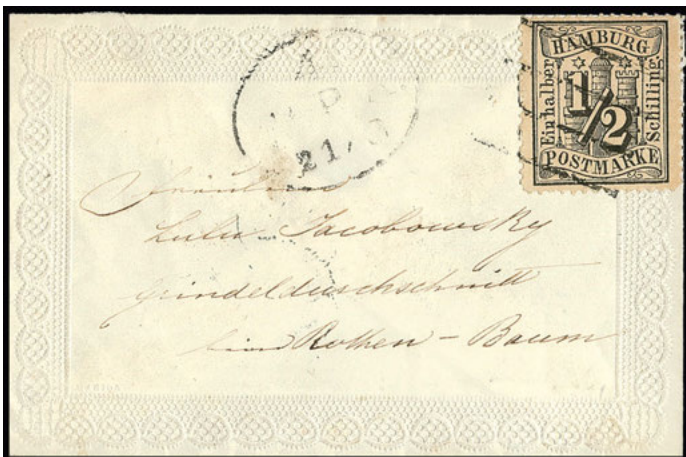 HAMBURG
Einhalber
1/2
Schilling
POSTMARKE
A
P
21/
Fräulein
Lulu Jacobowsky
Grindeldurchschnitt
Rothen-Baum